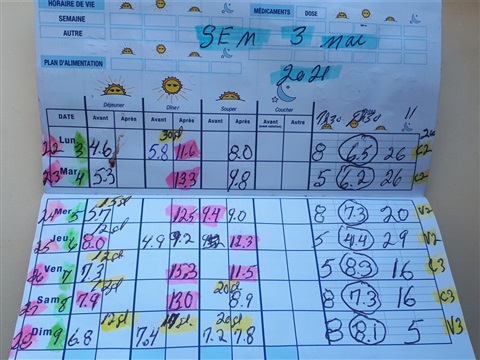 HORAIRE DE VIE
MÉDICAMENTS DOSE
SEMAINE
AUTRE
SEM 3 mai
2021
PLAN D'ALIMENTATION
Déjeuner Dîner Souper Coucher
DATE Avant Après Avant Après Avant Après Avant Autre
22 Lun 3 4.6 5.8 11.6 8.0 8 6.5 26 C2
23 Mar 4 5.3 13.3 9.8 5 6.2 26 C2
24 Mer 5 5.7 12.5 9.4 9.0 8 7.3 20 V2
25 Jeu 6 8.0 4.9 9.2 12.3 5 4.4 29 V2
26 Ven 7 7.3 15.3 11.5 5 8.3 16 C3
27 Sam 8 7.9 13.0 8.9 8 7.3 16 C3
28 Dim 9 6.8 7.4 7.2 7.8 8 8.1 5 V3